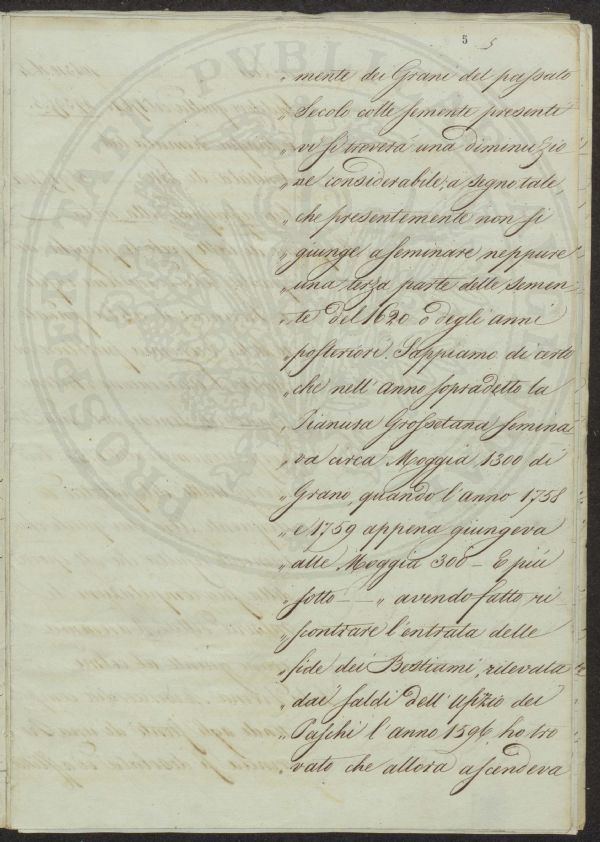 5 5
„ mente dei Grani del passato
„ Secolo colle semente presenti
„ vi si troverá una diminuzio
„ ne considerabile, a segno tale,
„ che presentemente non si
„ giunge a seminare neppure
„ una terza parte delle semen-
„ te del 1620 o degli anni
„ posteriori. Sappiamo di certo
„ che nell' anno sopradetto la
„ Pianura Grossetana semina
„ va circa Moggia 1300 di
„ Grano, quando l'anno 1758
„ e 1759 appena giungeva
„ alle Moggia 300 – E piú
„ sotto – – „ avendo fatto ri-
„ scontrare l'entrata delle
„ fide dei Bestiami, rilevata
„ dai saldi dell' Ufizio dei
„ Paschi l'anno 1596 ho tro
„ vato che allora ascendeva
PROSPERITATI PVBLICAE